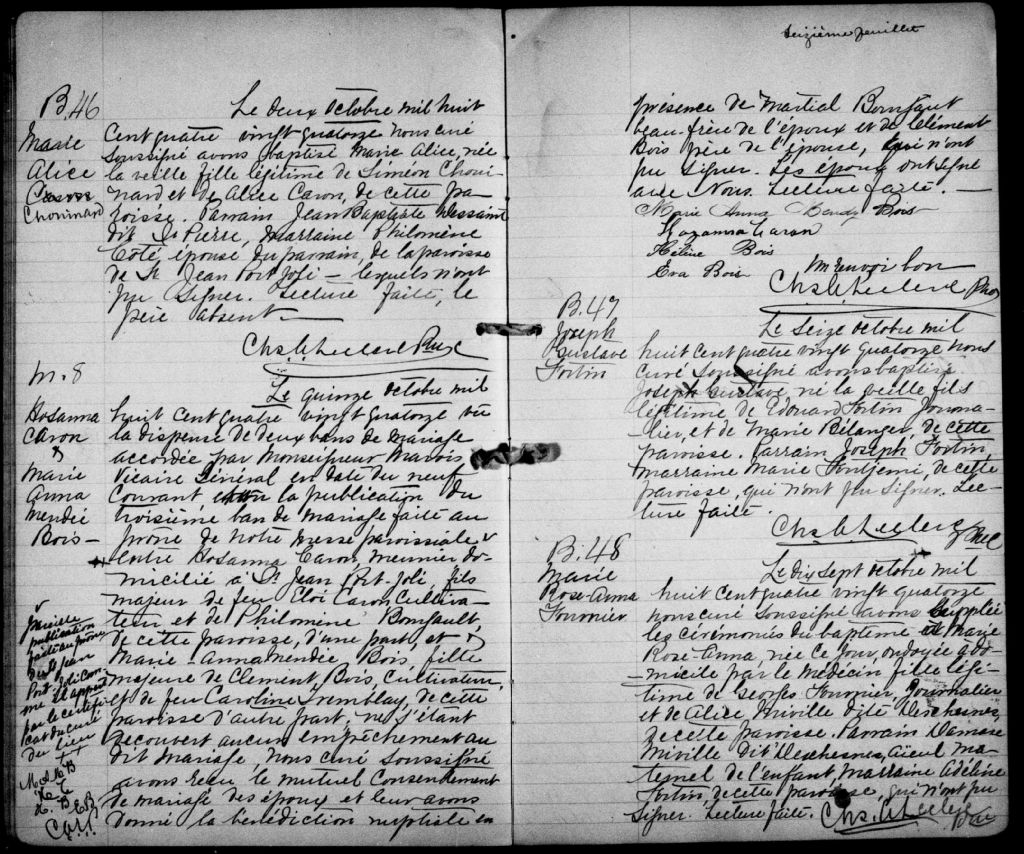 B.46
Marie
Alice
Chouinard
Le deux octobre mil huit
cent quatre vingt quatorze nous curé
soussigné avons baptisé Marie Alice, née
la veille fille légitime de Siméon Choui-
nard et de Alice Caron, de cette pa-
roisse. Parrain Jean Baptiste Dessaint
dit St Pierre, Marraine Philomène
Côté, épouse du parrain, de la paroisse
de St Jean Port Joli — lesquels n'ont
pu signer. Lecture faite, le
père absent.
Chs LeLeclerc
M.8
Rosanna
Caron
&
Marie
Anna
Mendée
Bois —
Le quinze octobre mil
huit cent quatre vingt quatorze vu
la dispense de deux bans de mariage
accordée par Monseigneur Marois
Vicaire Général en date du neuf
courant la publication du
troisième ban de mariage faite au
prône de notre messe paroissiale
entre Rosanna Caron, meunier do-
micilié à St Jean Port-Joli, fils
majeur de feu Eloi Caron cultiva-
teur et de Philomène Bonnfault,
de cette paroisse, d'une part, et
Marie-Anna Mendée Bois, fille
majeure de Clément Bois, cultivateur,
et de feu Caroline Tremblay, de cette
paroisse d'autre part, ne s'étant
découvert aucun empêchement au
dit mariage, Nous curé soussigné
avons reçu le mutuel consentement
de mariage des époux et leur avons
donné la bénédiction nuptiale en
publication
faite au prône
de St Jean
Port Joli com-
me il appert
par le certifi-
cat du curé
du lieu
Seizième feuillet
présence de Martial Bonnfaut
beau-frère de l'époux et de Clément
Bois père de l'épouse, qui n'ont
pu signer. Les époux ont signé
avec Nous. Lecture faite. —
Marie Anna Mendy Bois
Rozanna Caron
Hélène Bois
Eva Bois
Un renvoi bon
Chs LeLeclerc
B.47
Joseph
Gustave
Fortin
Le seize octobre mil
huit cent quatre vingt quatorze nous
curé soussigné avons baptisé
Joseph Gustave né la veille fils
légitime de Edouard Fortin Journa-
lier, et de Marie Bélanger, de cette
paroisse. Parrain Joseph Fortin,
marraine Marie de cette
paroisse, qui n'ont pu signer. Lec-
ture faite.
Chs LeLeclerc
B.48
Marie
Rose-Anna
Fournier
Le dix sept octobre mil
huit cent quatre vingt quatorze
nous curé soussigné avons supplée
les cérémonies du baptême à Marie
Rose-Anna, née ce jour, ondoyée à do-
micile par le médecin, fille légi-
time de Georges Fournier, Journalier
et de Alice Miville dite Deschesnes,
de cette paroisse. Parrain Damase
Miville dit Deschesnes, aïeul ma-
ternel de l'enfant, marraine Adéline
Fortin, de cette paroisse, qui n'ont pu
signer. Lecture faite. Chs LeLeclerc